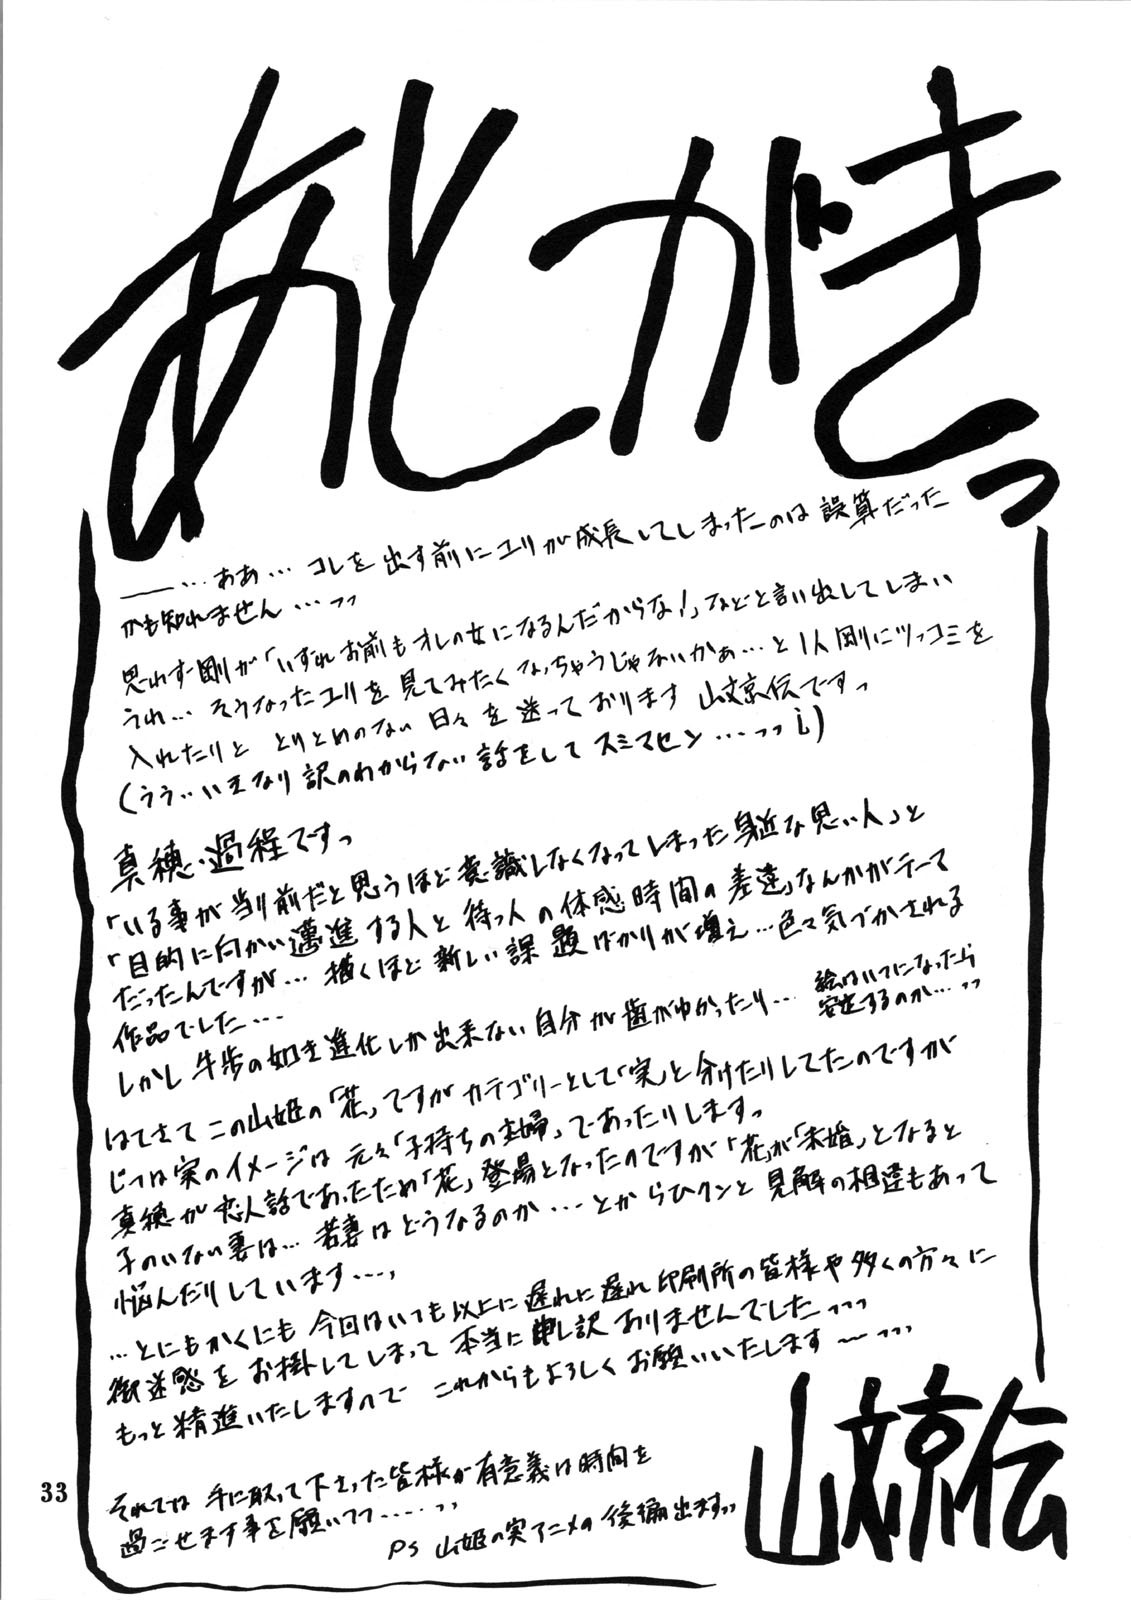 あとがきっ
―…ああ… コレを出す前にユリが成長してしまったのは誤算だった
かも知れません…っっ
思わず剛が「いずれお前もオレの女になるんだからな!」などと言い出してしまい
うれ… そうなったユリを見てみたくなっちゃうじゃないかぁ…と1人剛にツッコミを
入れたりと とりとめのない日々を送っております 山文京伝ですっ
(うう…いきなり訳のわからない話をしてスミマセン…っっ;)
真穂・過程ですっ
「いる事が当り前だと思うほど意識しなくなってしまった身近な思い人」と
「目的に向かい邁進する人と待つ人の体感時間の差違」なんかがテーマ
だったんですが… 描くほど新しい課題ばかりが増え…色々気づかされる
作品でした…
しかし牛歩の如き進化しか出来ない自分が歯がゆかったり…
絵はいつになったら
安定するのか…っっ
はてさてこの山姫の「花」ですがカテゴリーとして「実」と分けたりしてたのですが
じつは実のイメージは元々「子持ちの主婦」であったりしますっ
真穂が恋人話であったため「花」登場となったのですが「花」が「未婚」となると
子のいない妻は… 若妻はどうなるのか…とからひクンと見解の相違もあって
悩んだりしています…、
…とにもかくにも 今回はいつも以上に遅れに遅れ印刷所の皆様や多くの方々に
御迷惑をお掛けしてしまって本当に申し訳ありませんでした…っっ
もっと精進いたしますので これからもよろしくお願いいたします〜…っっ
それでは 手に取って下さった皆様が有意義な時間を
過ごせます事を願いつつ……っっ
PS 山姫の実アニメの後編出ますっっ
山文京伝
33